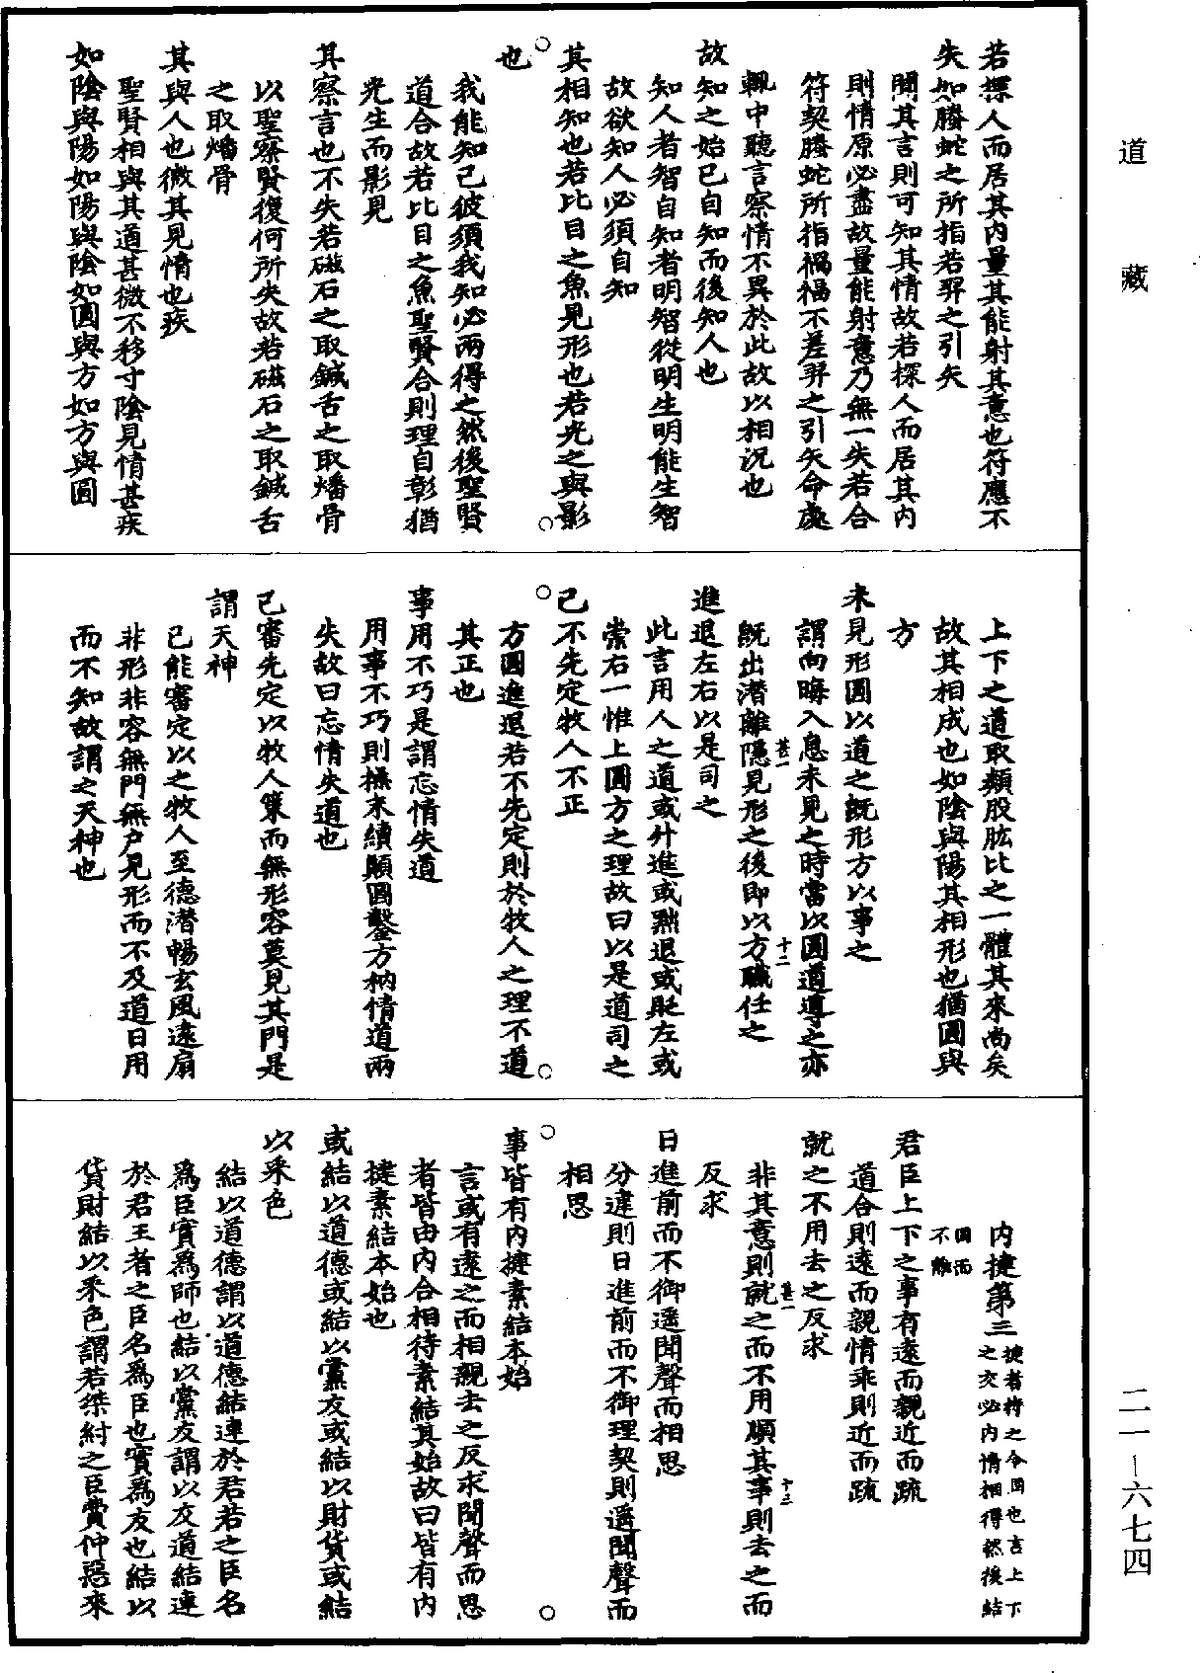 若探人而居其內量其能射其意也符應不
失如螣蛇之所指若羿之引矢
聞其言則可知其情故若探人而居其內
則情原必盡故量能射意乃無一失若合
符契螣蛇所指禍福不差羿之引矢命處
輒中聽言察情不異於此故以相況也
故知之始已自知而後知人也
知人者智自知者明智從明生明能生智
故欲知人必須自知
其相知也若比目之魚見形也若光之與影
也
我能知己彼須我知必兩得之然後聖賢
道合故若比目之魚聖賢合則理自彰猶
光生而影見
其察言也不失若磁石之取鍼舌之取燔骨
以聖察賢復何所失故若磁石之取鍼舌
之取燔骨
其與人也微其見情也疾
聖賢相與其道甚微不移寸陰見情甚疾
如陰與陽如陽與陰如圓與方如方與圓
上下之道取類股肱比之一體其來尚矣
故其相成也如陰與陽其相形也猶圓與
方
未見形圓以道之既形方以事之
謂向晦入息未見之時當以圓道導之亦
既出潛離隱見形之後即以方職任之
甚一 十二
進退左右以是司之
此言用人之道或升進或黜退或貶左或
崇右一惟上圓方之理故曰以是道司之
己不先定牧人不正
方圓進退若不先定則於牧人之理不道
其正也
事用不巧是謂忘情失道
用事不巧則操末續顛圓鑿方枘情道兩
失故曰忘情失道也
己審先定以牧人策而無形容莫見其門是
謂天神
己能審定以之牧人至德潛暢玄風遠扇
非形非容無門無戶見形而不及道日用
而不知故謂之天神也
內揵第三 揵者持之令固也言上下之交必內情相得然後結
固而不離
君臣上下之事有遠而親近而疏
道合則遠而親情乖則近而疏
就之不用去之反求
非其意則就之而不用順其事則去之而
甚一 十三
反求
日進前而不御遙聞聲而相思
分違則日進前而不御理契則遙聞聲而
相思
事皆有內揵素結本始
言或有遠之而相親去之反求聞聲而思
者皆由內合相待素結其始故曰皆有內
揵素結本始也
或結以道德或結以黨友或結以財貨或結
以采色
結以道德謂以道德結連於君若之臣名
為臣實為師也結以黨友謂以友道結連
於君王者之臣名為臣也實為友也結以
貨財結以采色謂若桀紂之臣費仲惡來
道藏
二一—六七四